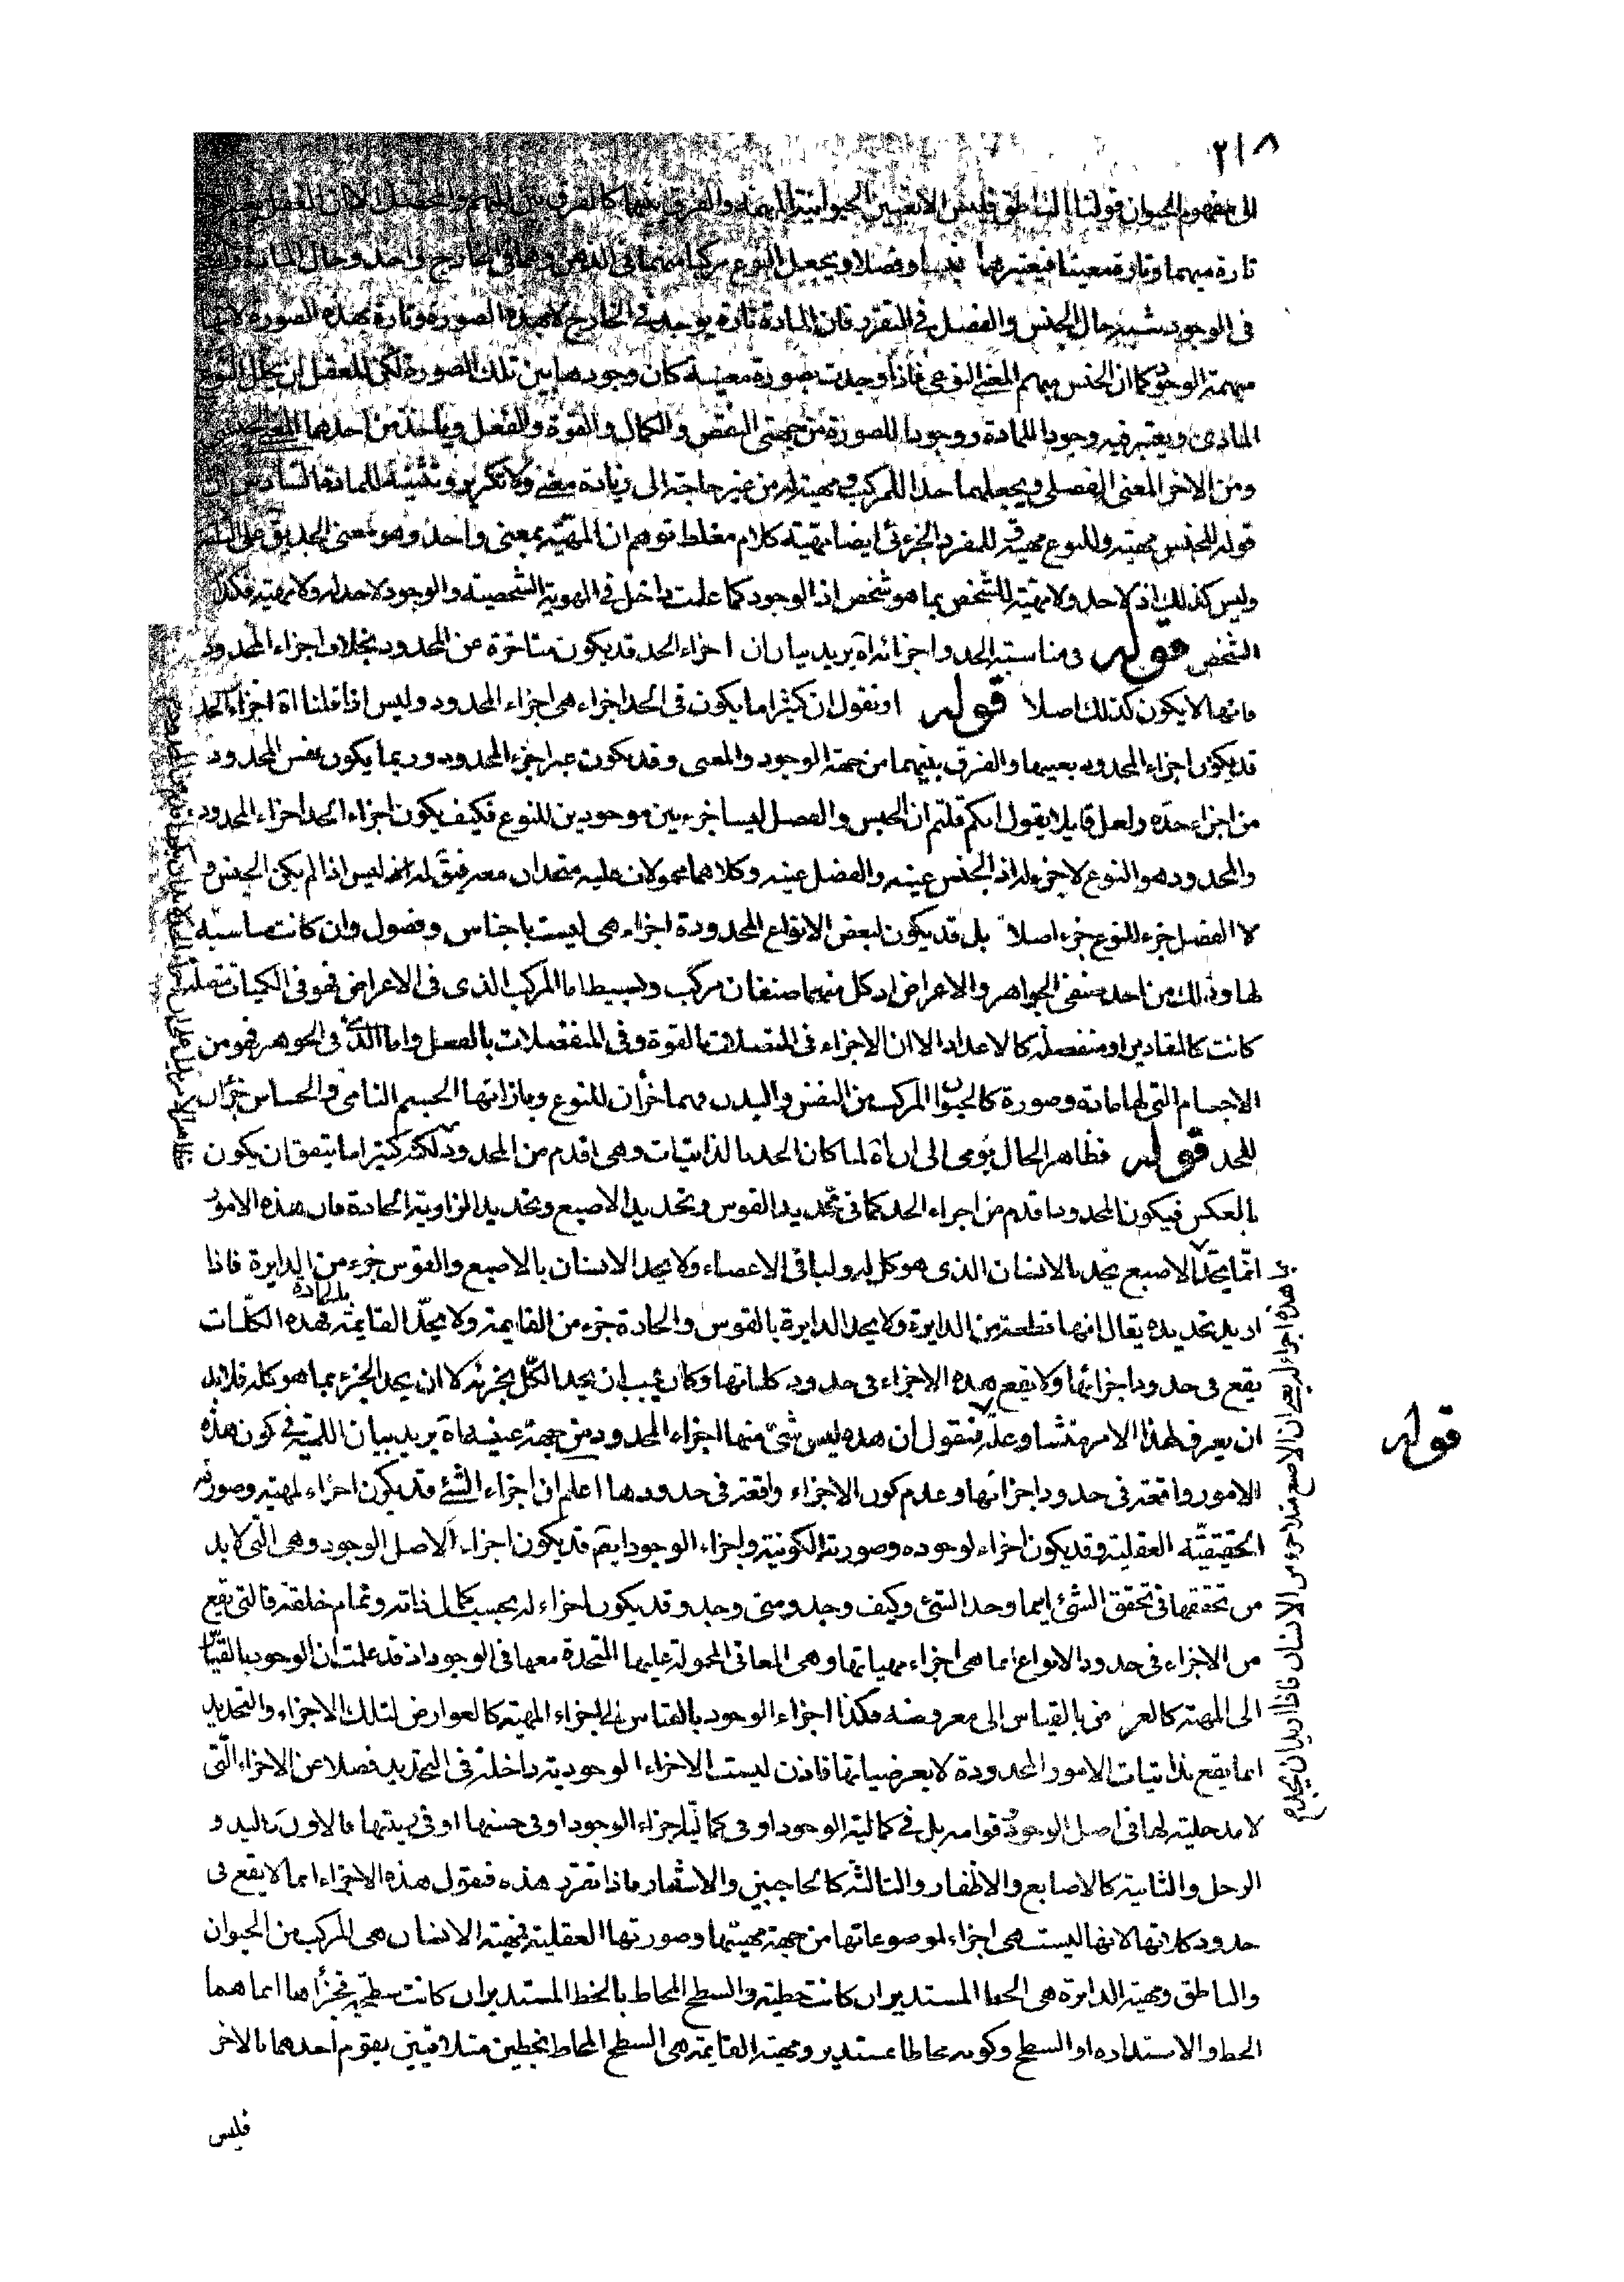 ٢١٨
الى مفهوم الحيوان قولنا الناطق فليس الا تعيين الحيوانية المبهمة والفرق بينهما كالفرق بين المبهم والمحصل الا ان العقل
تارة مبهما وتارة معينا فيعتبرهما جنسا وفصلا ويجعل النوع مركبا منهما فى الذهن وهما فى الخارج واحد وحال المادة
فى الوجود شبيه حال الجنس والفصل فى التقرر فان المادة تارة يوجد فى الخارج لا بهذه الصورة وتارة بهذه الصورة لانها
مبهمة الوجود كما ان الجنس مبهم المعنى النوعى فاذا وجدت بصورة معينة كان وجودها بين تلك الصورة لكن للعقل ان يحلل النوع
المادى ويعتبر فيه وجودا للمادة ووجودا للصورة من جهتى النقص والكمال والقوة والفعل وياخذ من احدهما المعنى الجنسى
ومن الاخر المعنى الفصلى ويجعلهما حدا للمركب ومهية له من غير حاجة الى زيادة معنى ولا تكرير وتثنية للمادة السادس ان
قوله للجنس مهية وللنوع مهية وللمفرد الجزئى ايضا مهية كلام مغلط توهم ان المهية بمعنى واحد وهو معنى الحد يق على
وليس كذلك اذ لا حد ولا مهية للشخص بما هو شخص اذ الوجود كما علمت داخل فى الهوية الشخصية والوجود لا حد له ولا مهية فكذا
الشخص قوله فى مناسبة الحد واجزائه اه يريد بيان ان اجزاء الحد قد يكون متاخرة من المحدود بخلاف اجزاء المحدود
فانها لا يكون كذلك اصلا قوله او نقول ان كثيرا ما يكون فى الحد اجزاء هى اجزاء المحدود وليس اذا قلنا اه اجزاء الحد
قد يكون اجزاء المحدود بعينها والفرق بينهما من جهة الوجود والمعنى وقد يكون غير اجزء المحدود وربما يكون نفس المحدود
من اجزاء حده ولعل قايلا يقول انكم قلتم ان الجنس والفصل ليسا جزءين موجودين للنوع فكيف يكون اجزاء الحد اجزاء المحدود
والمحدود هو النوع لا جزء له اذ الجنس عينه والفصل عينه وكلاهما محمولان عليه متحدان معه فيق له انه ليس اذا لم يكن الجنس و
لا الفصل جزء للنوع جزء اصلا بل قد يكون لبعض الانواع المحدودة اجزاء هى ليست باجناس وفصول وان كانت مناسبة
لها وذلك من احد صنفى الجواهر والاعراض اذ كل منهما صنفان مركب وبسيط اما المركب الذى فى الاعراض فهو فى الكميات متصلة
كانت كالمقادير او منفصلة كالاعداد الا ان الاجزاء فى المتصلات بالقوة وفى المنفصلات بالفعل واما الذى فى الجوهر فهو من
الاجسام التى لها مادة وصورة كالحيوان المركب من النفس والبدن فهما جزآن للنوع وبازائهما الجسم النامى والحساس جزآن
للحد قوله فظاهر الحال يومى الى ان اه لما كان الحد بالذاتيات وهى اقدم من المحدود لكنه كثيرا ما يتفق ان يكون
بالعكس فيكون المحدود اقدم من اجزاء الحد كما فى تحديد القوس وتحديد الاصبع وتحديد الزاوية الحادة فان هذه الامور
انما يحد الاصبع يحد بالانسان الذى هو كل له ولباقى الاعضاء ولا يحد الانسان بالاصبع والقوس جزء من الدايرة فاذا
اريد تحديده يقال انها قطعة من الدايرة ولا يحد الدايرة بالقوس والحادة جزء من القايمة ولا يحد القايمة بالحادة فهذه الكليات
يقع فى حدود اجزائها ولا يقع هذه الاجزاء فى حدود كلياتها وكان يجب ان يحد الكل بجزئه لا ان يحد الجزء بما هو كله فلابد
ان يعرف لهذا الامر منشا وعلة فنقول ان هذه ليس شئ منها اجزاء المحدود من جهة عينه اه يريد بيان اللمية فى كون هذه
الامور واقعة فى حدود اجزائها وعدم كون الاجزاء واقعة فى حدودها اعلم ان اجزاء الشئ قد يكون اجزاء لمهيته وصورته
الحقيقيّة العقلية وقد يكون اجزاء لوجوده وصورته الكونية واجزاء الوجود ايم قد يكون اجزاء لاصل الوجود وهى التى لا بد
من تحققها فى تحقق الشئ اينما وجد الشئ وكيف وجد ومتى وجد وقد يكون اجزاء له بحسب كمال ذاته وتمام خلقته فالتى يقع
من الاجزاء فى حدود الانواع انما هى اجزاء مهياتها وهى المعانى المحمولة عليها المتحدة معها فى الوجود اذ قد علمت ان الوجود بالقياس
الى المهية كالعرض بالقياس الى معروضه فكذا اجزاء الوجود بالقياس الى اجزاء المهية كالعوارض لتلك الاجزاء والتحديد
انما يقع بذاتيات الامور المحدودة لا بعرضياتها فاذن ليست الاجزاء الوجودية داخلة فى التحديد فضلا عن الاجزاء الّتى
لا مدخلية لها فى اصل الوجود وقوامه بل فى كمالية الوجود او فى كمالية اجزاء الوجود او فى حسنها او فى زينتها فالاول كاليد و
الرجل والثانية كالاصابع والاظفار والثالثة كالحاجبين والاشفار فاذا تقرر هذه فنقول هذه الاجزاء انما لا يقع فى
حدود كلاتها لانها ليست هى اجزاء لموضوعاتها من جهة مهيتها وصورتها العقلية فمهية الانسان هى المركب من الحيوان
والناطق ومهية الدايرة هى الخط المستدير ان كانت خطية والسطح المحاط بالخط المستدير ان كانت سطحية فجزأاها انما هما
الخط والاستدارة او السطح وكونه محاطا بمستدير ومهية القايمة هى السطح المحاط بخطين متلاقيين يقوم احدهما بالاخر
فليس
هذه اجزاء له يعنى ان الاصبع مثلا جزء من الانسان فاذا اريد ان يحد
قوله